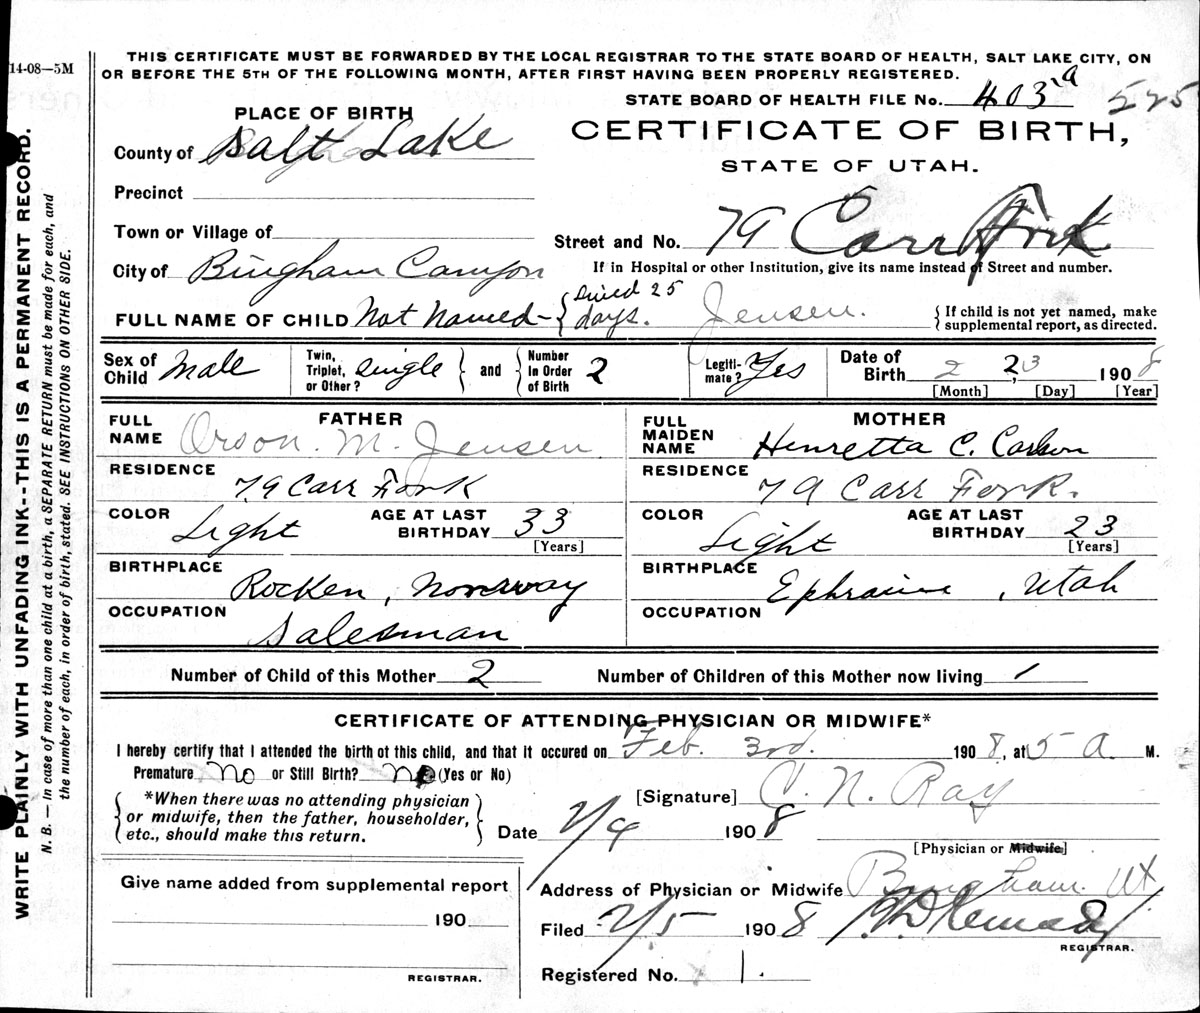 THIS CERTIFICATE MUST BE FORWARDED BY THE LOCAL REGISTRAR TO THE STATE BOARD OF HEALTH, SALT LAKE CITY, ON
14-08—5M
OR BEFORE THE 5TH OF THE FOLLOWING MONTH, AFTER FIRST HAVING BEEN PROPERLY REGISTERED.
STATE BOARD OF HEALTH FILE No. 403 a 525
PLACE OF BIRTH
CERTIFICATE OF BIRTH,
County of Salt Lake
STATE OF UTAH.
Precinct
Town or Village of
Street and No. 79 Carr Fork
City of Bingham Canyon
If in Hospital or other Institution, give its name instead of Street and number.
FULL NAME OF CHILD Not Named - { Lived 25 days. Jensen. { If child is not yet named, make supplemental report, as directed.
Sex of Child Male Twin, Triplet, or Other? single } and { Number in Order of Birth 2 Legiti- mate? Yes Date of Birth 2 23 1908
[Month] [Day] [Year]
FATHER
FULL NAME Orson. M. Jensen.
RESIDENCE 79 Carr Fork
COLOR Light AGE AT LAST BIRTHDAY 33
[Years]
BIRTHPLACE Rocken, Norway
OCCUPATION Salesman
MOTHER
FULL MAIDEN NAME Henretta C. Carlson
RESIDENCE 79 Carr Fork.
COLOR Light AGE AT LAST BIRTHDAY 23
[Years]
BIRTHPLACE Ephraim, Utah
OCCUPATION
Number of Child of this Mother 2 Number of Children of this Mother now living 1
CERTIFICATE OF ATTENDING PHYSICIAN OR MIDWIFE*
I hereby certify that I attended the birth of this child, and that it occured on Feb. 3rd. 1908, at 5 A. M.
Premature No or Still Birth? No (Yes or No)
[Signature] C. N. Ray
{ *When there was no attending physician or midwife, then the father, householder, etc., should make this return. }
Date 2/4 1908
[Physician or Midwife]
Give name added from supplemental report
190
REGISTRAR.
Address of Physician or Midwife Bingham. Ut
Filed 2/5 1908
REGISTRAR.
Registered No. 1.
WRITE PLAINLY WITH UNFADING INK--THIS IS A PERMANENT RECORD.
N. B. — In case of more than one child at a birth, a SEPARATE RETURN must be made for each, and
the number of each, in order of birth, stated. SEE INSTRUCTIONS ON OTHER SIDE.